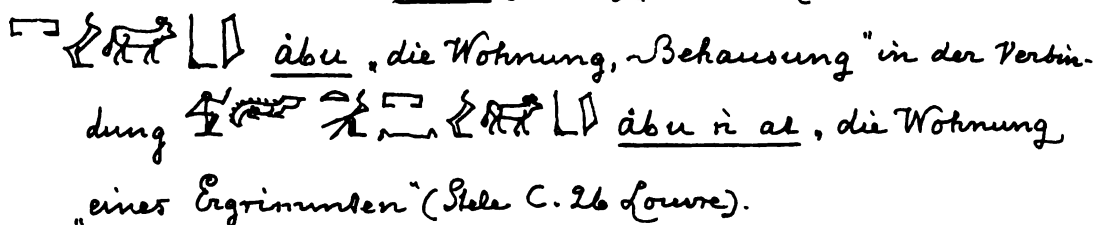 ȧbu „die Wohnung, Behausung“ in der Verbin-
dung ȧbu ṅ at „die Wohnung
„eines Ergrimmten“ (Stele C. 26 Louvre).